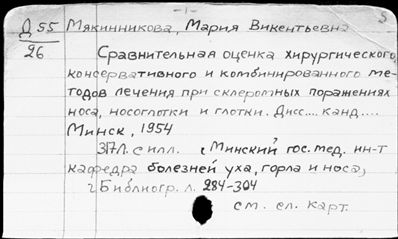 - 1 - 5
Д 55 Мякинникова, Мария Викентьевна
26
Сравнительная оценка хирургического,
консервативного и комбинированного ме-
тодов лечения при склеромных поражениях
носа, носоглотки и глотки. Дисс.... канд....
Минск, 1954
317л. с илл. (Минский гос. мед. ин-т
кафедра болезней уха, горла и носа)
Библиогр. л. 284-304
см. сл. карт.